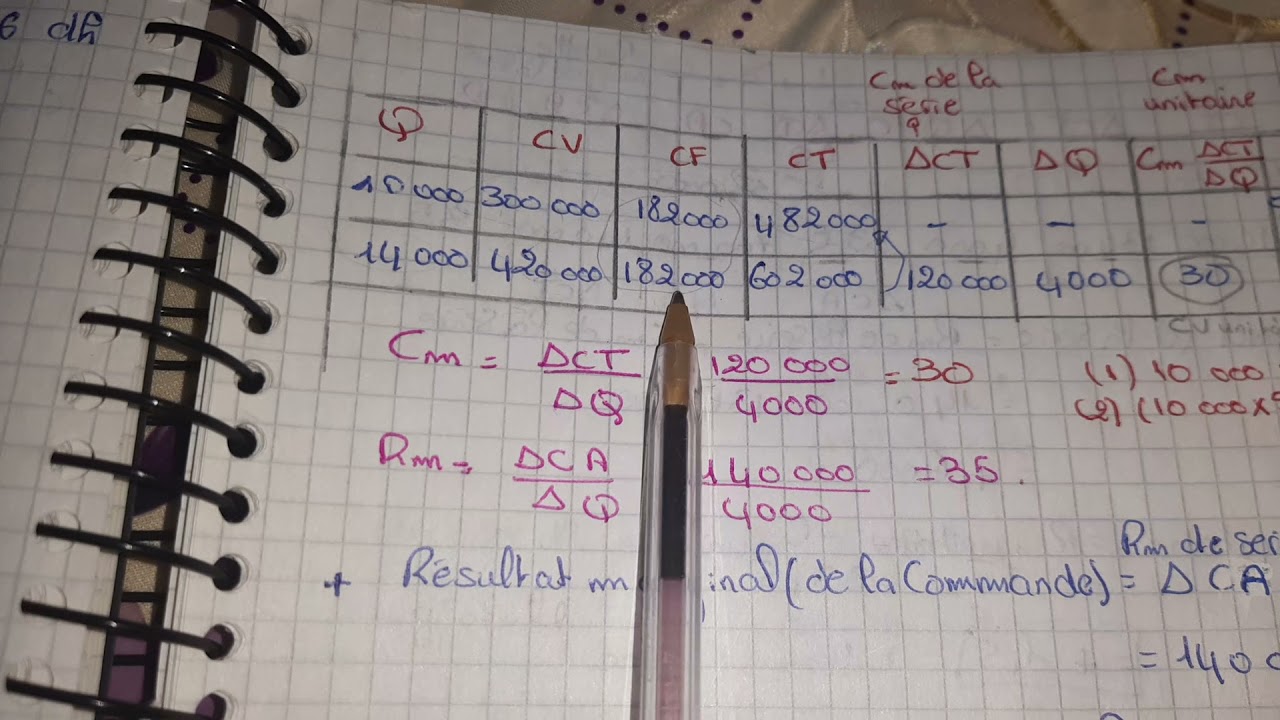 6 dh
Cm de la série
Cm unitaire
Q CV CF CT ΔCT ΔQ Cm ΔCT/ΔQ
10 000 300 000 182 000 482 000 - - -
14 000 420 000 182 000 602 000 120 000 4000 30
CV unit
Cm = ΔCT/ΔQ 120 000/4000 = 30 (1) 10 000
(2) (10 000 x
Rm = ΔCA/ΔQ 140 000/4000 = 35.
Rm de ser
+ Résultat (de la Commande) = ΔCA
= 140